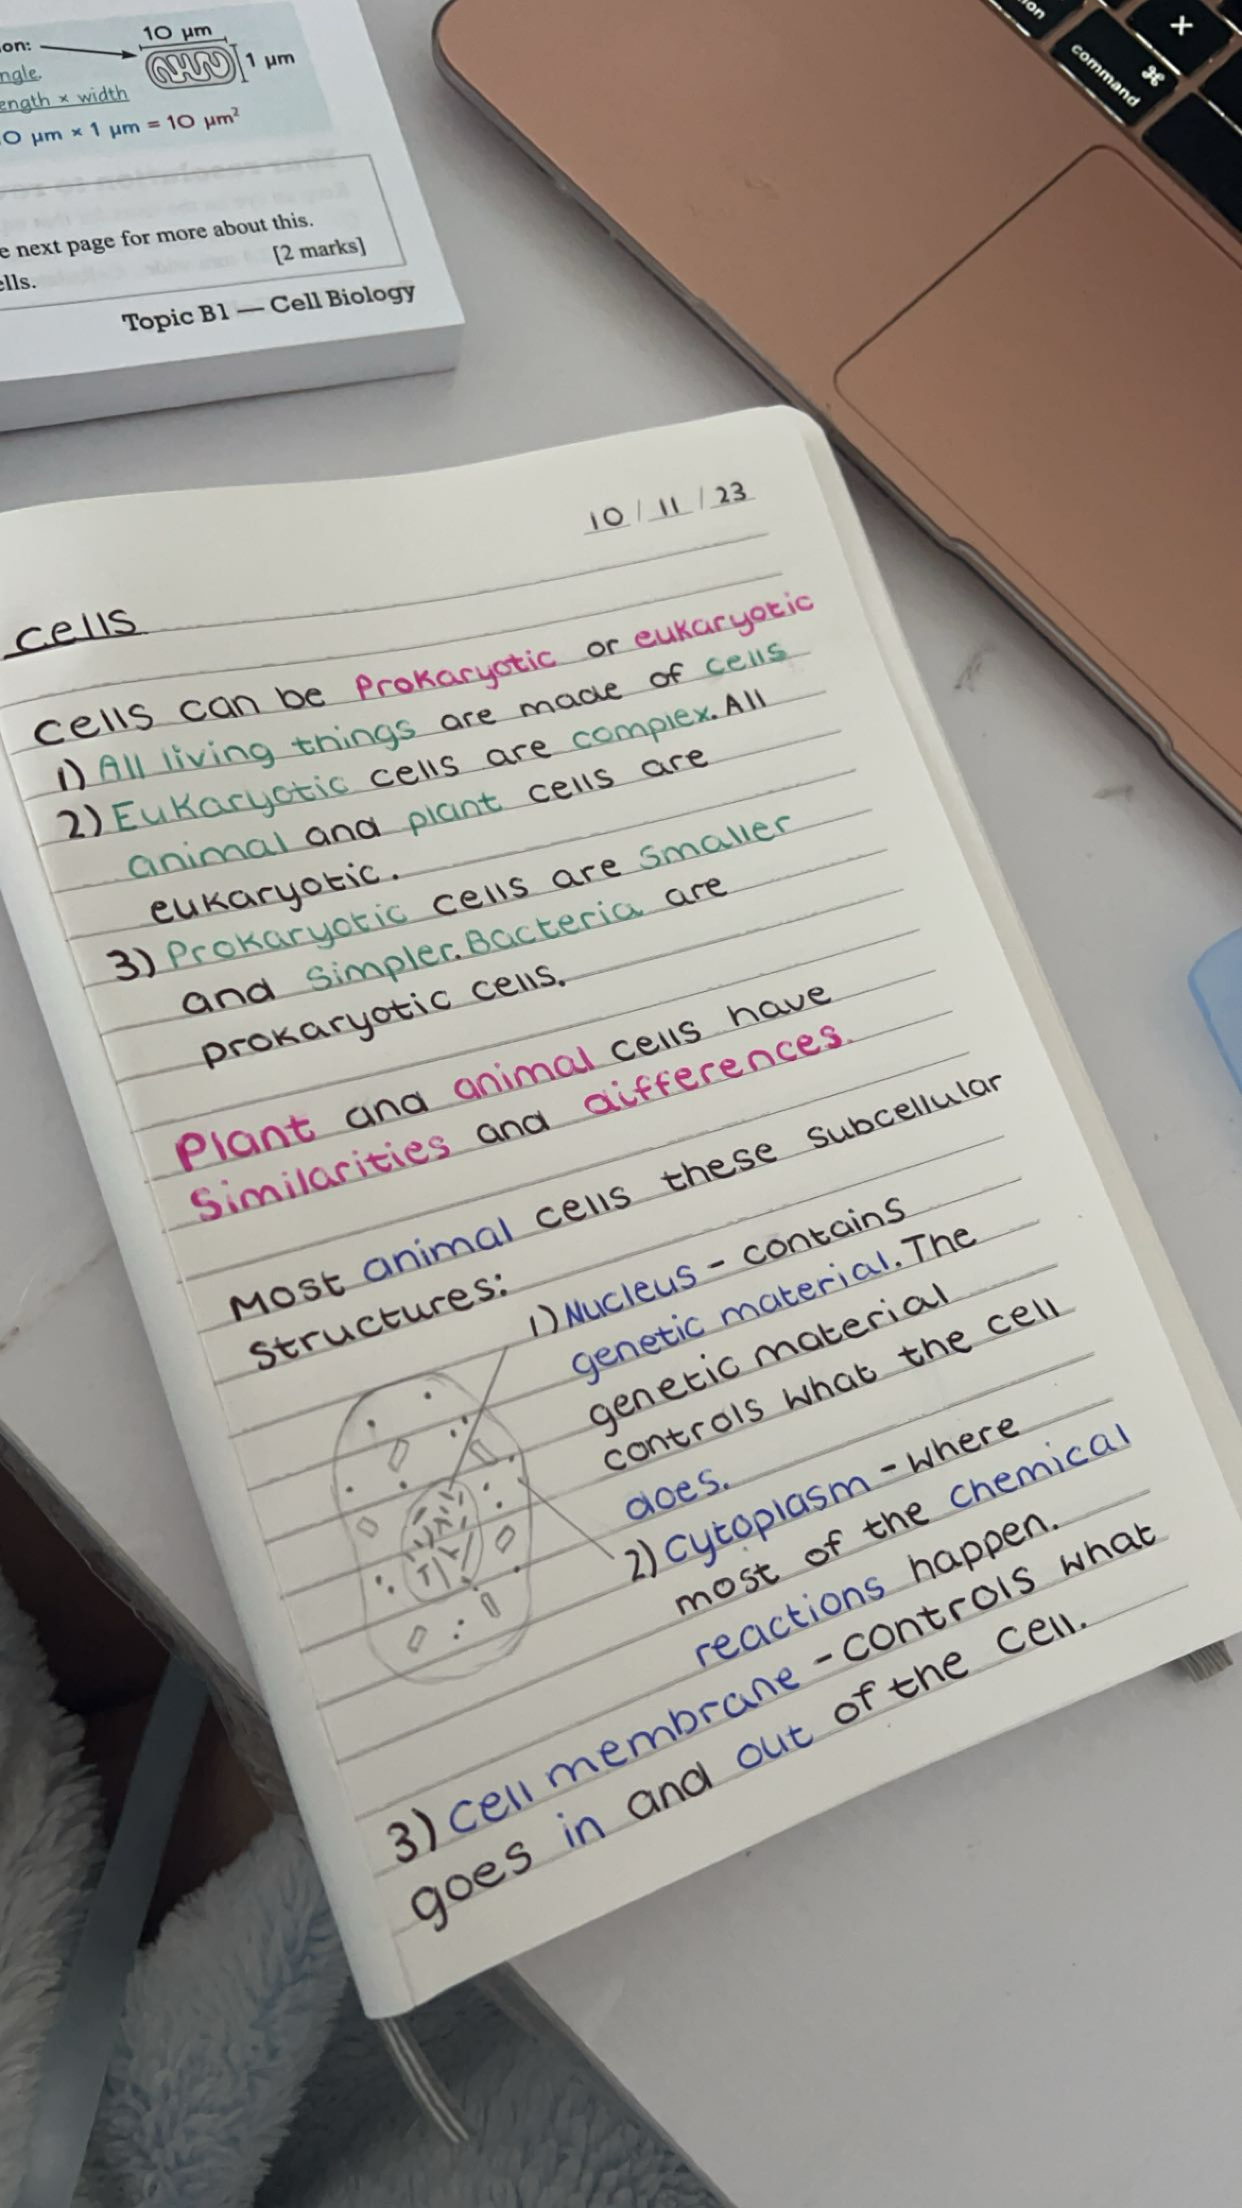 on:
10 μm
1 μm
ngle.
ength × width
0 μm × 1 μm = 10 μm²
e next page for more about this.
[2 marks]
ells.
Topic B1 — Cell Biology
command
⌘
X
on
10 / 11 / 23
cells
cells can be Prokaryotic or eukaryotic
1) All living things are made of cells
2) Eukaryotic cells are complex. All
animal and plant cells are
eukaryotic.
3) Prokaryotic cells are smaller
and Simpler. Bacteria are
prokaryotic cells.
Plant and animal cells have
Similarities and differences.
Most animal cells these subcellular
structures:
1) Nucleus - contains
genetic material. The
genetic material
controls what the cell
does.
2) Cytoplasm - where
most of the chemical
reactions happen.
3) Cell membrane - controls what
goes in and out of the cell.